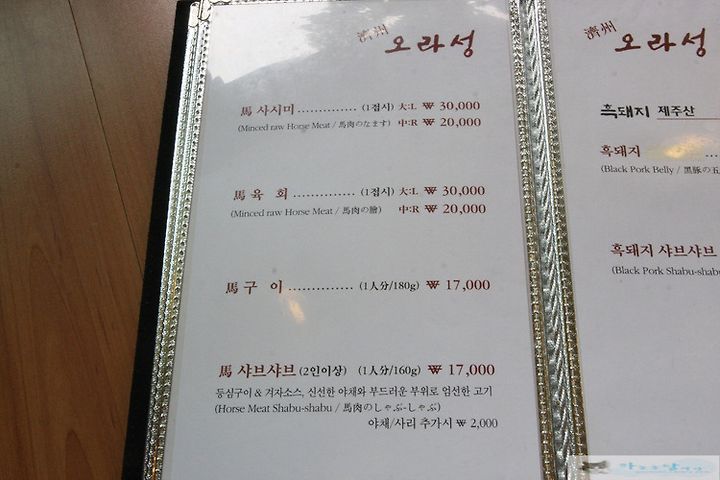 濟州 오라성
馬 사시미 .............. (1접시) 大:L ₩ 30,000
(Minced raw Horse Meat / 馬肉のなます) 中:R ₩ 20,000
馬 육 회 .............. (1접시) 大:L ₩ 30,000
(Minced raw Horse Meat / 馬肉の膾) 中:R ₩ 20,000
馬 구 이 .............. (1人分/180g) ₩ 17,000
馬 샤브샤브 (2인이상) (1人分/160g) ₩ 17,000
등심구이 & 겨자소스, 신선한 야채와 부드러운 부위로 엄선한 고기
(Horse Meat Shabu-shabu / 馬肉のしゃぶ-しゃぶ)
야채/사리 추가시 ₩ 2,000
濟州 오라성
흑돼지 제주산
흑돼지 ...
(Black Pork Belly / 黑豚の五
흑돼지 샤브샤브
(Black Pork Shabu-shabu